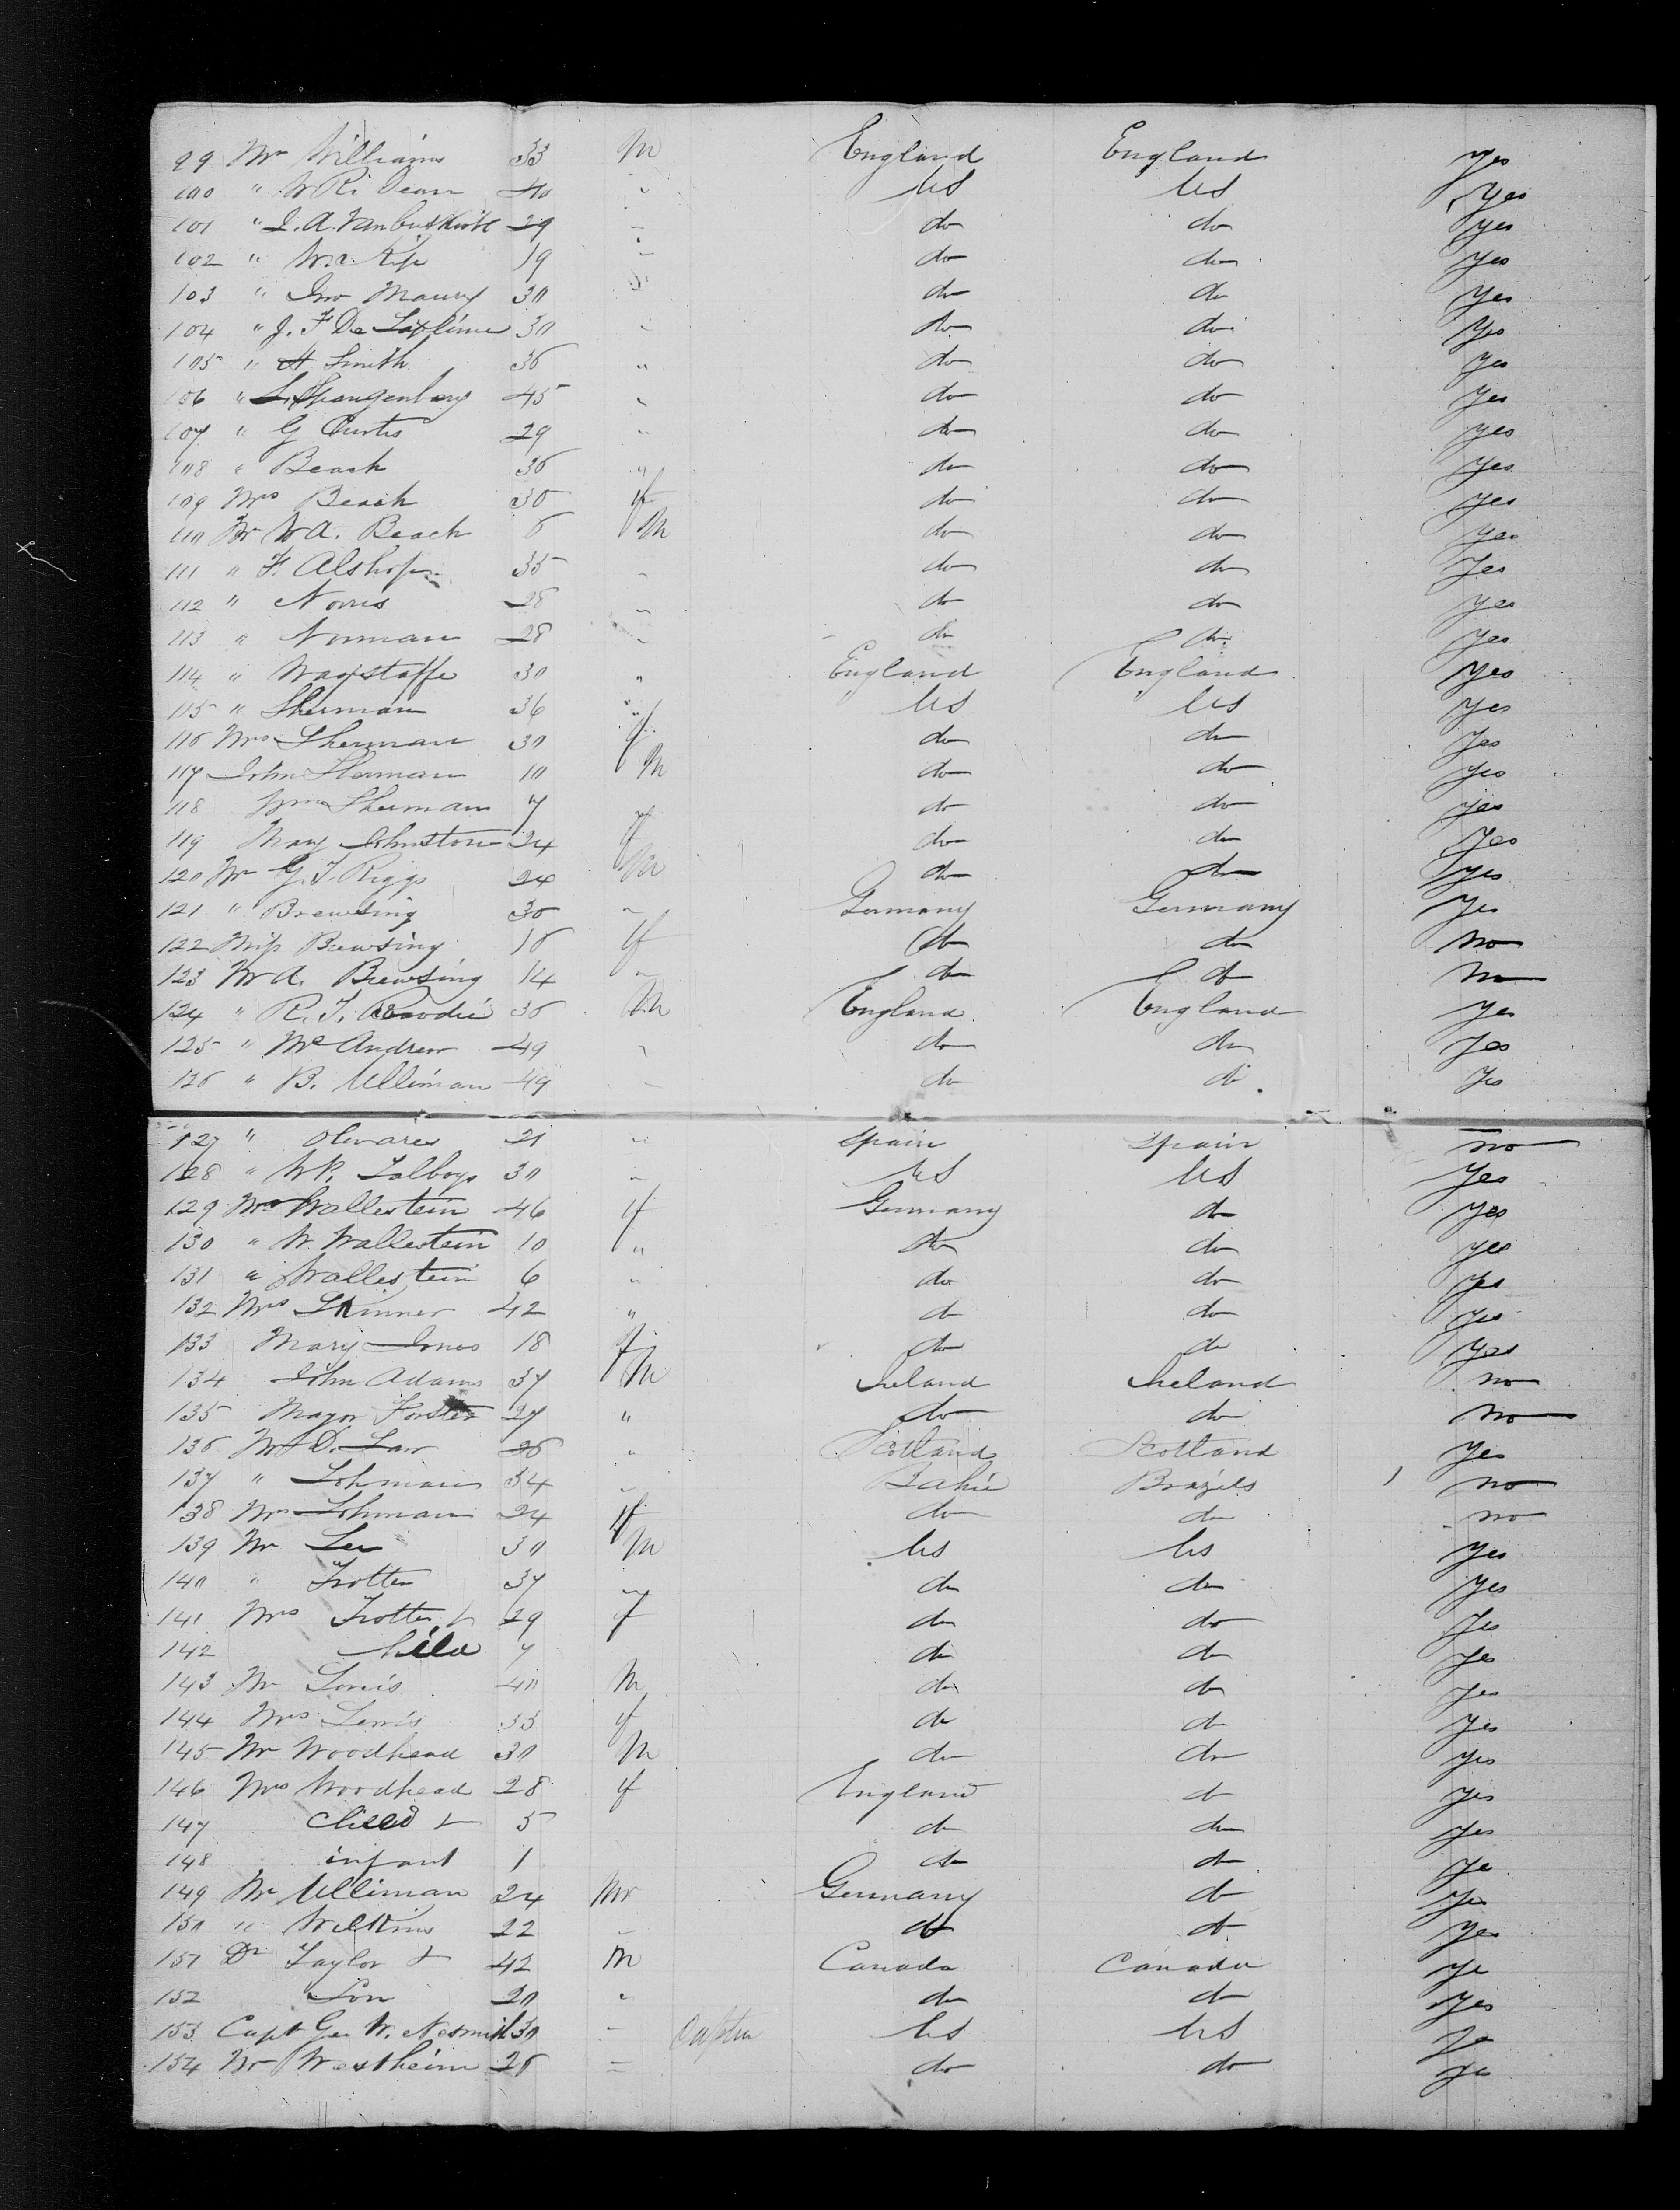 99 Mr Williams 33 M England England yes
100 " W R. Dean 40 " US US yes
101 " I. A. Vanbuskirk 29 " do do yes
102 " Wm. Kip 19 " do do yes
103 " Jno Maury 30 " do do yes
104 " J. F De 30 " do do yes
105 " H Smith 36 " do do yes
106 " L. Spangenberg 45 " do do yes
107 " G Curtis 29 " do do yes
108 " Beach 36 " do do yes
109 Mrs Beach 30 f do do yes
110 Mr W A. Beach 6 M do do yes
111 " F. Alshop 35 " do do yes
112 " Norris 28 " do do yes
113 " Norman 28 " do do yes
114 " Wagstaffe 30 " England England yes
115 " Sherman 36 " US US yes
116 Mrs Sherman 30 f do do yes
117 John Sherman 10 M do do yes
118 Wm Sherman 7 do do yes
119 Mary Johnston 24 f do do yes
120 Mr G. T. Riggs 24 M do do yes
121 " Brewsing 30 " Germany Germany yes
122 Miss Brewsing 16 f do do no
123 Mr A. Brewsing 14 " do do no
124 " R. T. 36 M England England yes
125 " McAndrew 49 " do do yes
126 " B. Ulliman 49 " do do yes
127 " Olivares 21 " Spain Spain no
128 " W R. Talboys 30 " US US yes
129 Mrs Wallestein 46 f Germany do yes
130 " W. Wallestein 10 " do do yes
131 " Wallestein 6 " do do yes
132 Mrs Skinner 42 " do do yes
133 Mary Jones 18 f do do yes
134 John Adams 37 M Ireland Ireland no
135 Mayor Forster 27 " do do no
136 Mr D. Law 26 " Scotland Scotland yes
137 " Lohman 34 " Bahie Brazils no
138 Mrs Lohman 24 f do do no
139 Mr Lee 30 M US US yes
140 " Trotter 37 " do do yes
141 Mrs Trotter & 29 f do do yes
142 child 7 do do yes
143 Mr Lewis 40 M do do yes
144 Mrs Lewis 33 f do do yes
145 Mr Woodhead 30 M do do yes
146 Mrs Woodhead 28 f England do yes
147 child & 5 do do yes
148 infant 1 do do ye
149 Mr Ulliman 24 M Germany do yes
150 " Wilkins 22 " do do yes
151 Dr Taylor & 42 M Canada Canada ye
152 Son 20 " do do yes
153 Capt Geo W. Nesmith 30 " US US ye
154 Mr Westheim 26 " do do yes